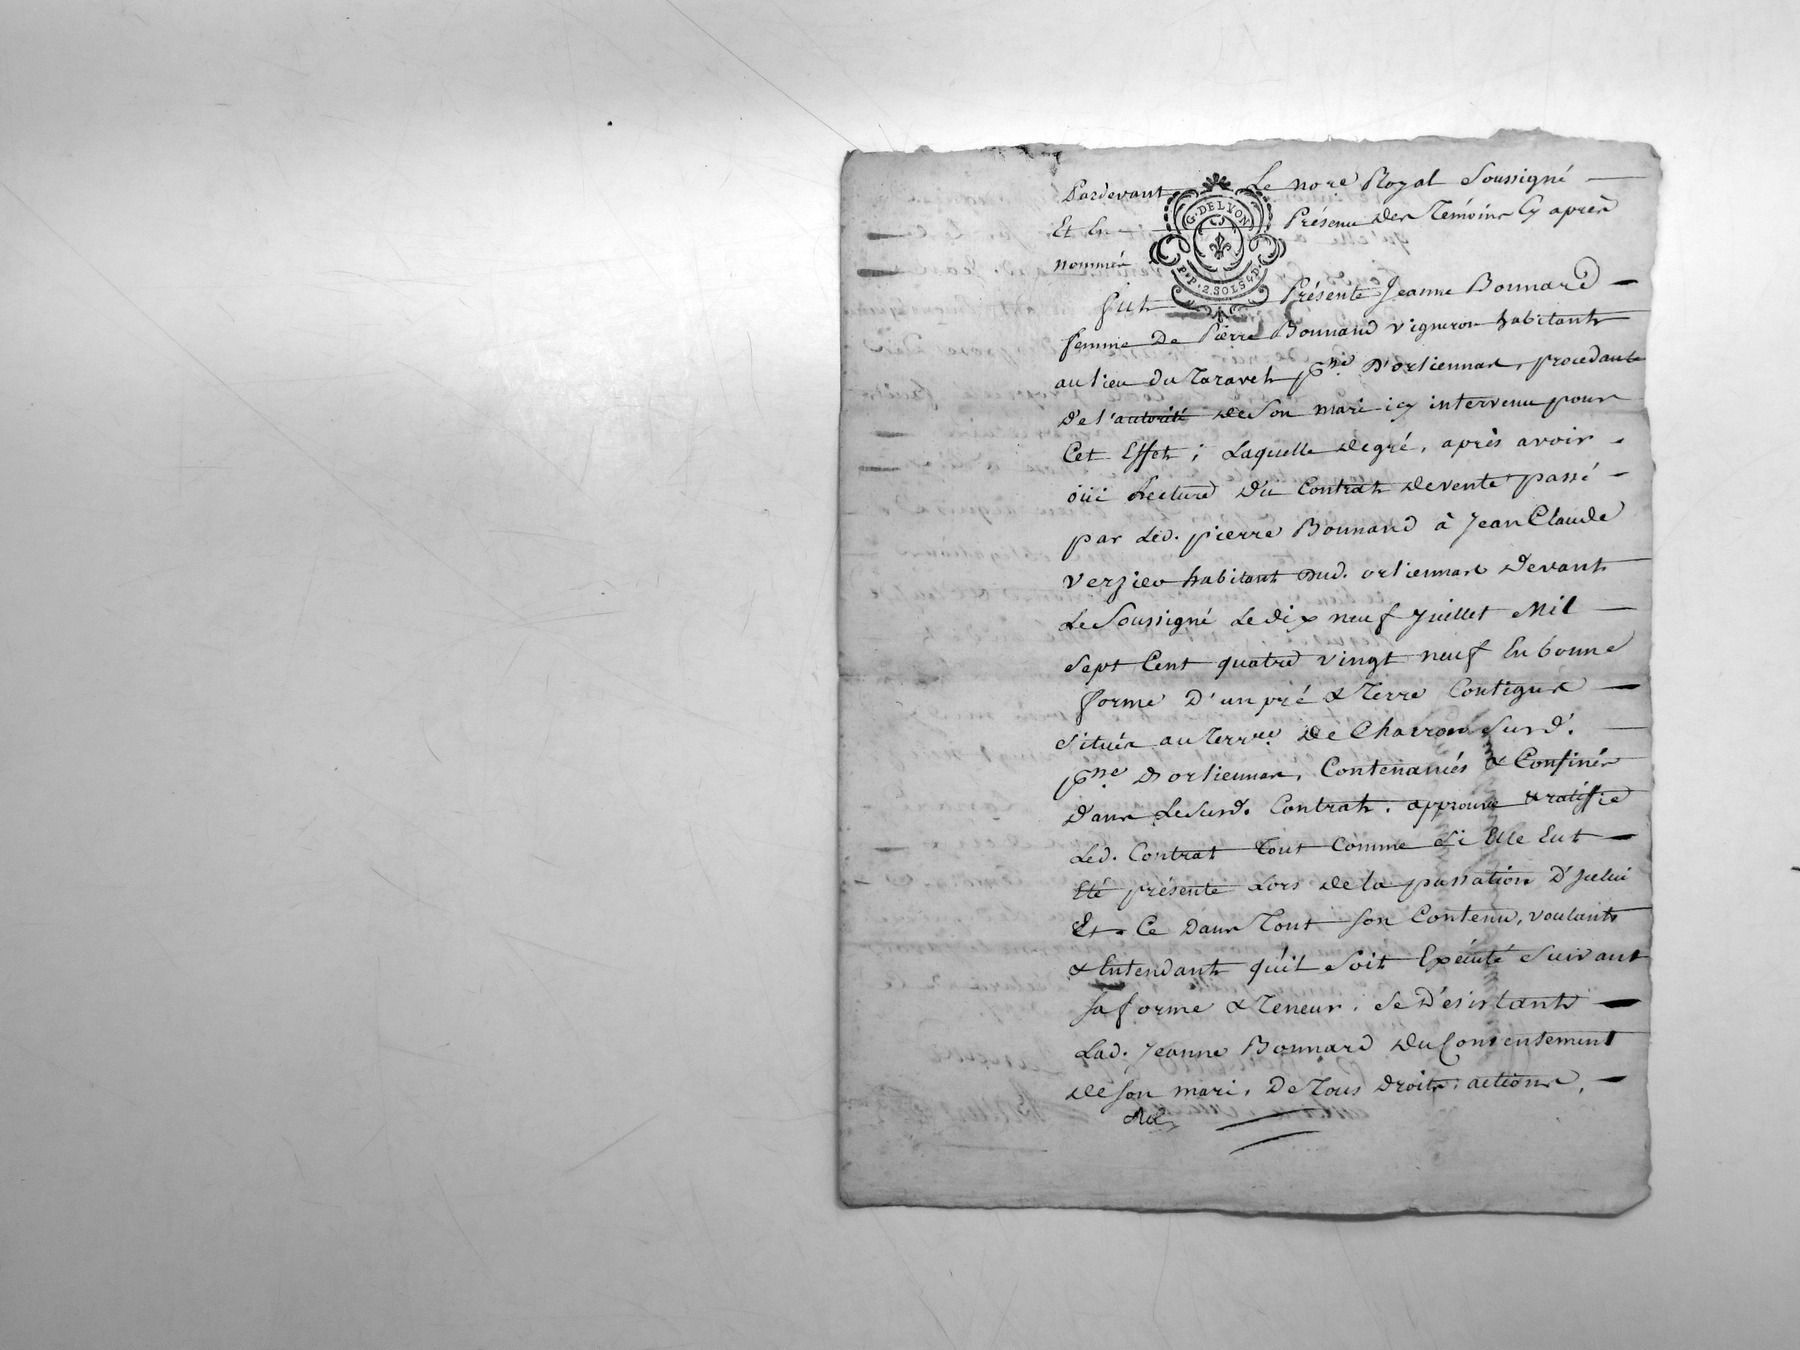 Pardevant Le no.re Royal Soussigné
Et En Présence Des Témoins Cy après
nommés
G. DE LYON
P.P. 2. SOLS 4 D.
fut Présente Jeanne Bonnard
femme De Pierre Bonnand vigneron habitants
au lieu du Taravel p.sse D'orliennas, procedante
De l'autorité de Son mari icy intervenu pour
Cet Effet; Laquelle de gré, après avoir
oüi Lecture Du Contrat de vente passé
par Led. pierre Bonnand à Jean Claude
Verzieu habitant Dud. orliennas Devant
Le Soussigné Le dix neuf Juillet Mil
Sept Cent quatre vingt neuf En bonne
forme D'un pré & Terre Contigus
Situés au Terr.re De Charron Surd.
p.sse D'orliennas, Contenancés & Confinés
Dans Le Surd. Contrat, approuve & ratiffie
Led. Contrat Tout Comme Si Elle Eut
Eté présente Lors de la passation D'Jcelui
Et Ce Dans Tout Son Contenu, voulants
& Entendants qu'il Soit Exécuté Suivant
Sa forme & Teneur, Se Désistants
Lad. Jeanne Bonnard Du Consentement
de Son mari, De Tous Droits, actions,